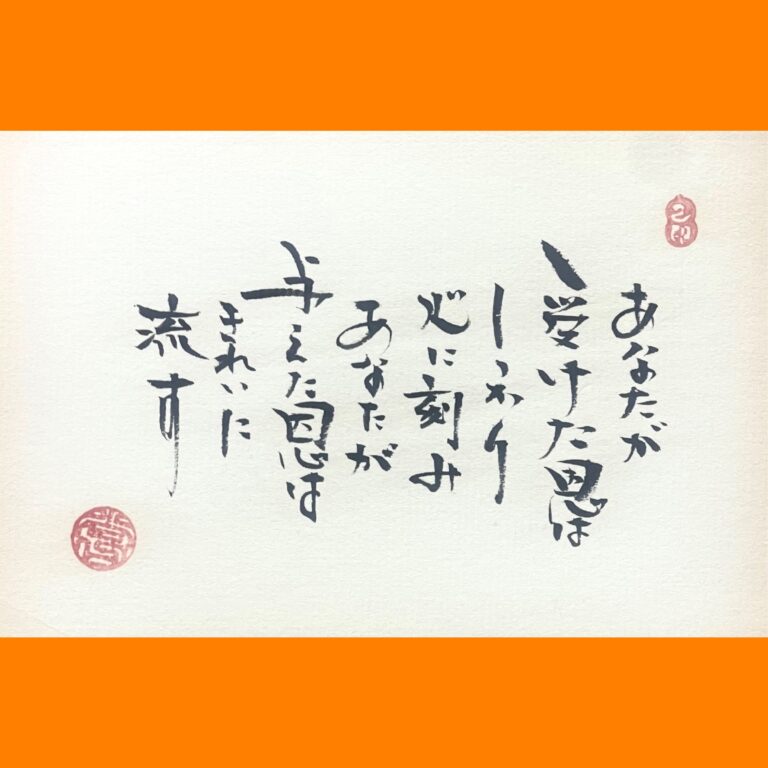 あなたが
受けた恩は
しっかり
心に刻み
あなたが
与えた恩は
きれいに
流す